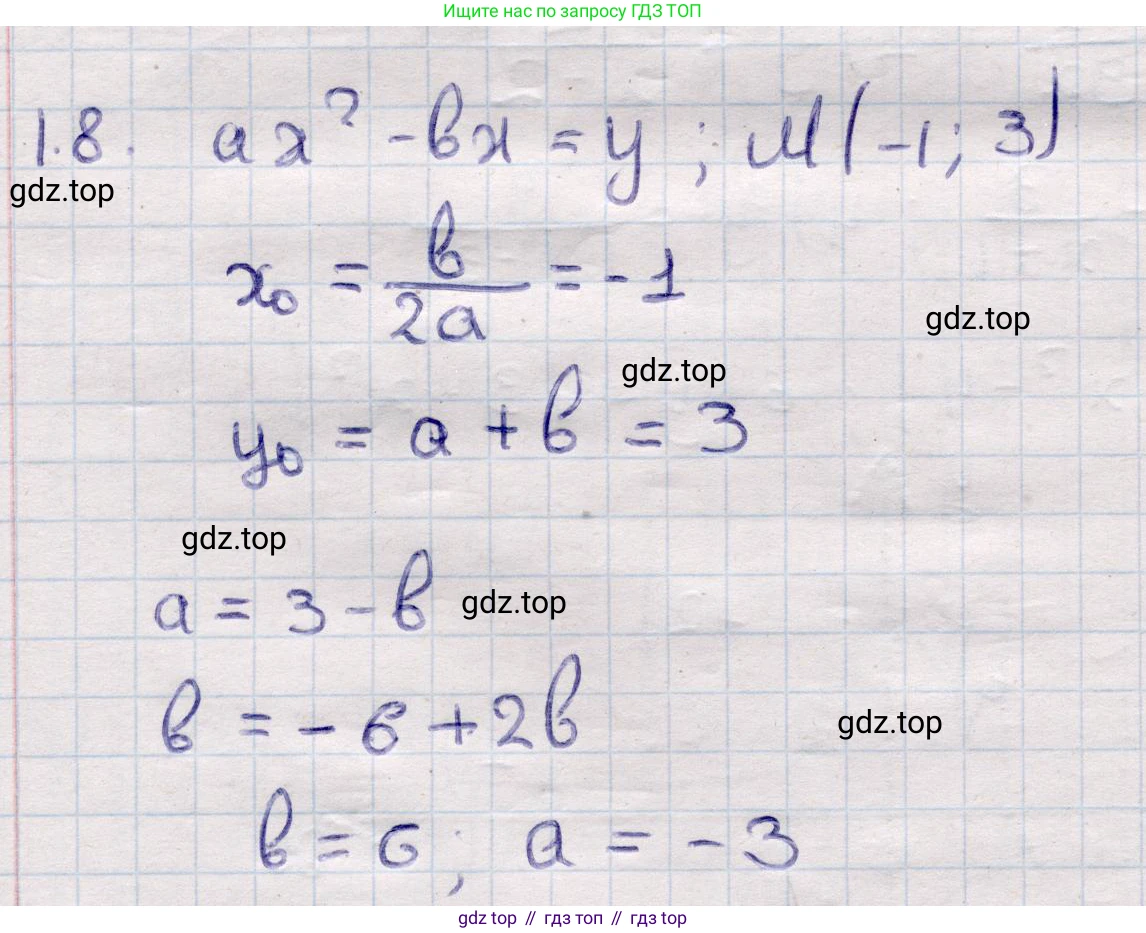 Ищите нас по запросу ГДЗ ТОП
1.8. ax² - bx = y ; M(-1; 3)
gdz.top
x₀ = b/2a = -1
gdz.top
gdz.top
y₀ = a + b = 3
gdz.top
a = 3 - b gdz.top
b = - 6 + 2b
gdz.top
b = 6 ; a = - 3
gdz top // гдз топ // gdz top